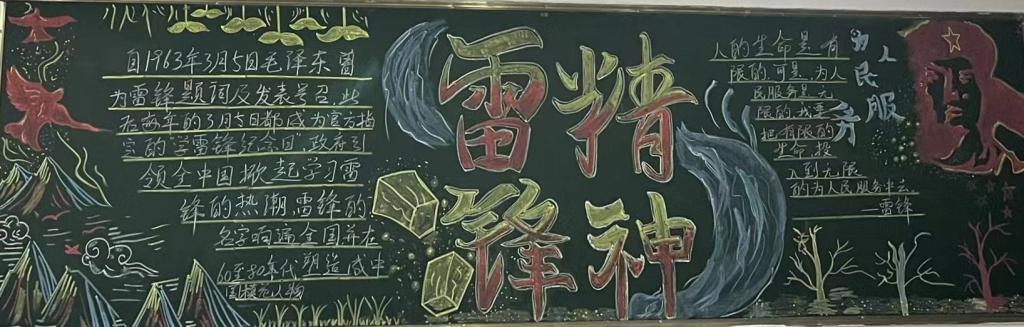 自1963年3月5日毛泽东曾
为雷锋题词及发表号召,此
后每年的3月5日都成为官方指
定的学雷锋纪念日,政府引
领全中国掀起学习雷
锋的热潮,雷锋的
名字响遍全国并在
60至80年代塑造成中
国模范人物
雷锋
精神
人的生命是有
限的,可是,为人
民服务是无
限的,我要
把有限的
生命投
入到无限
的为人民服务中去
—雷锋
为人民服务